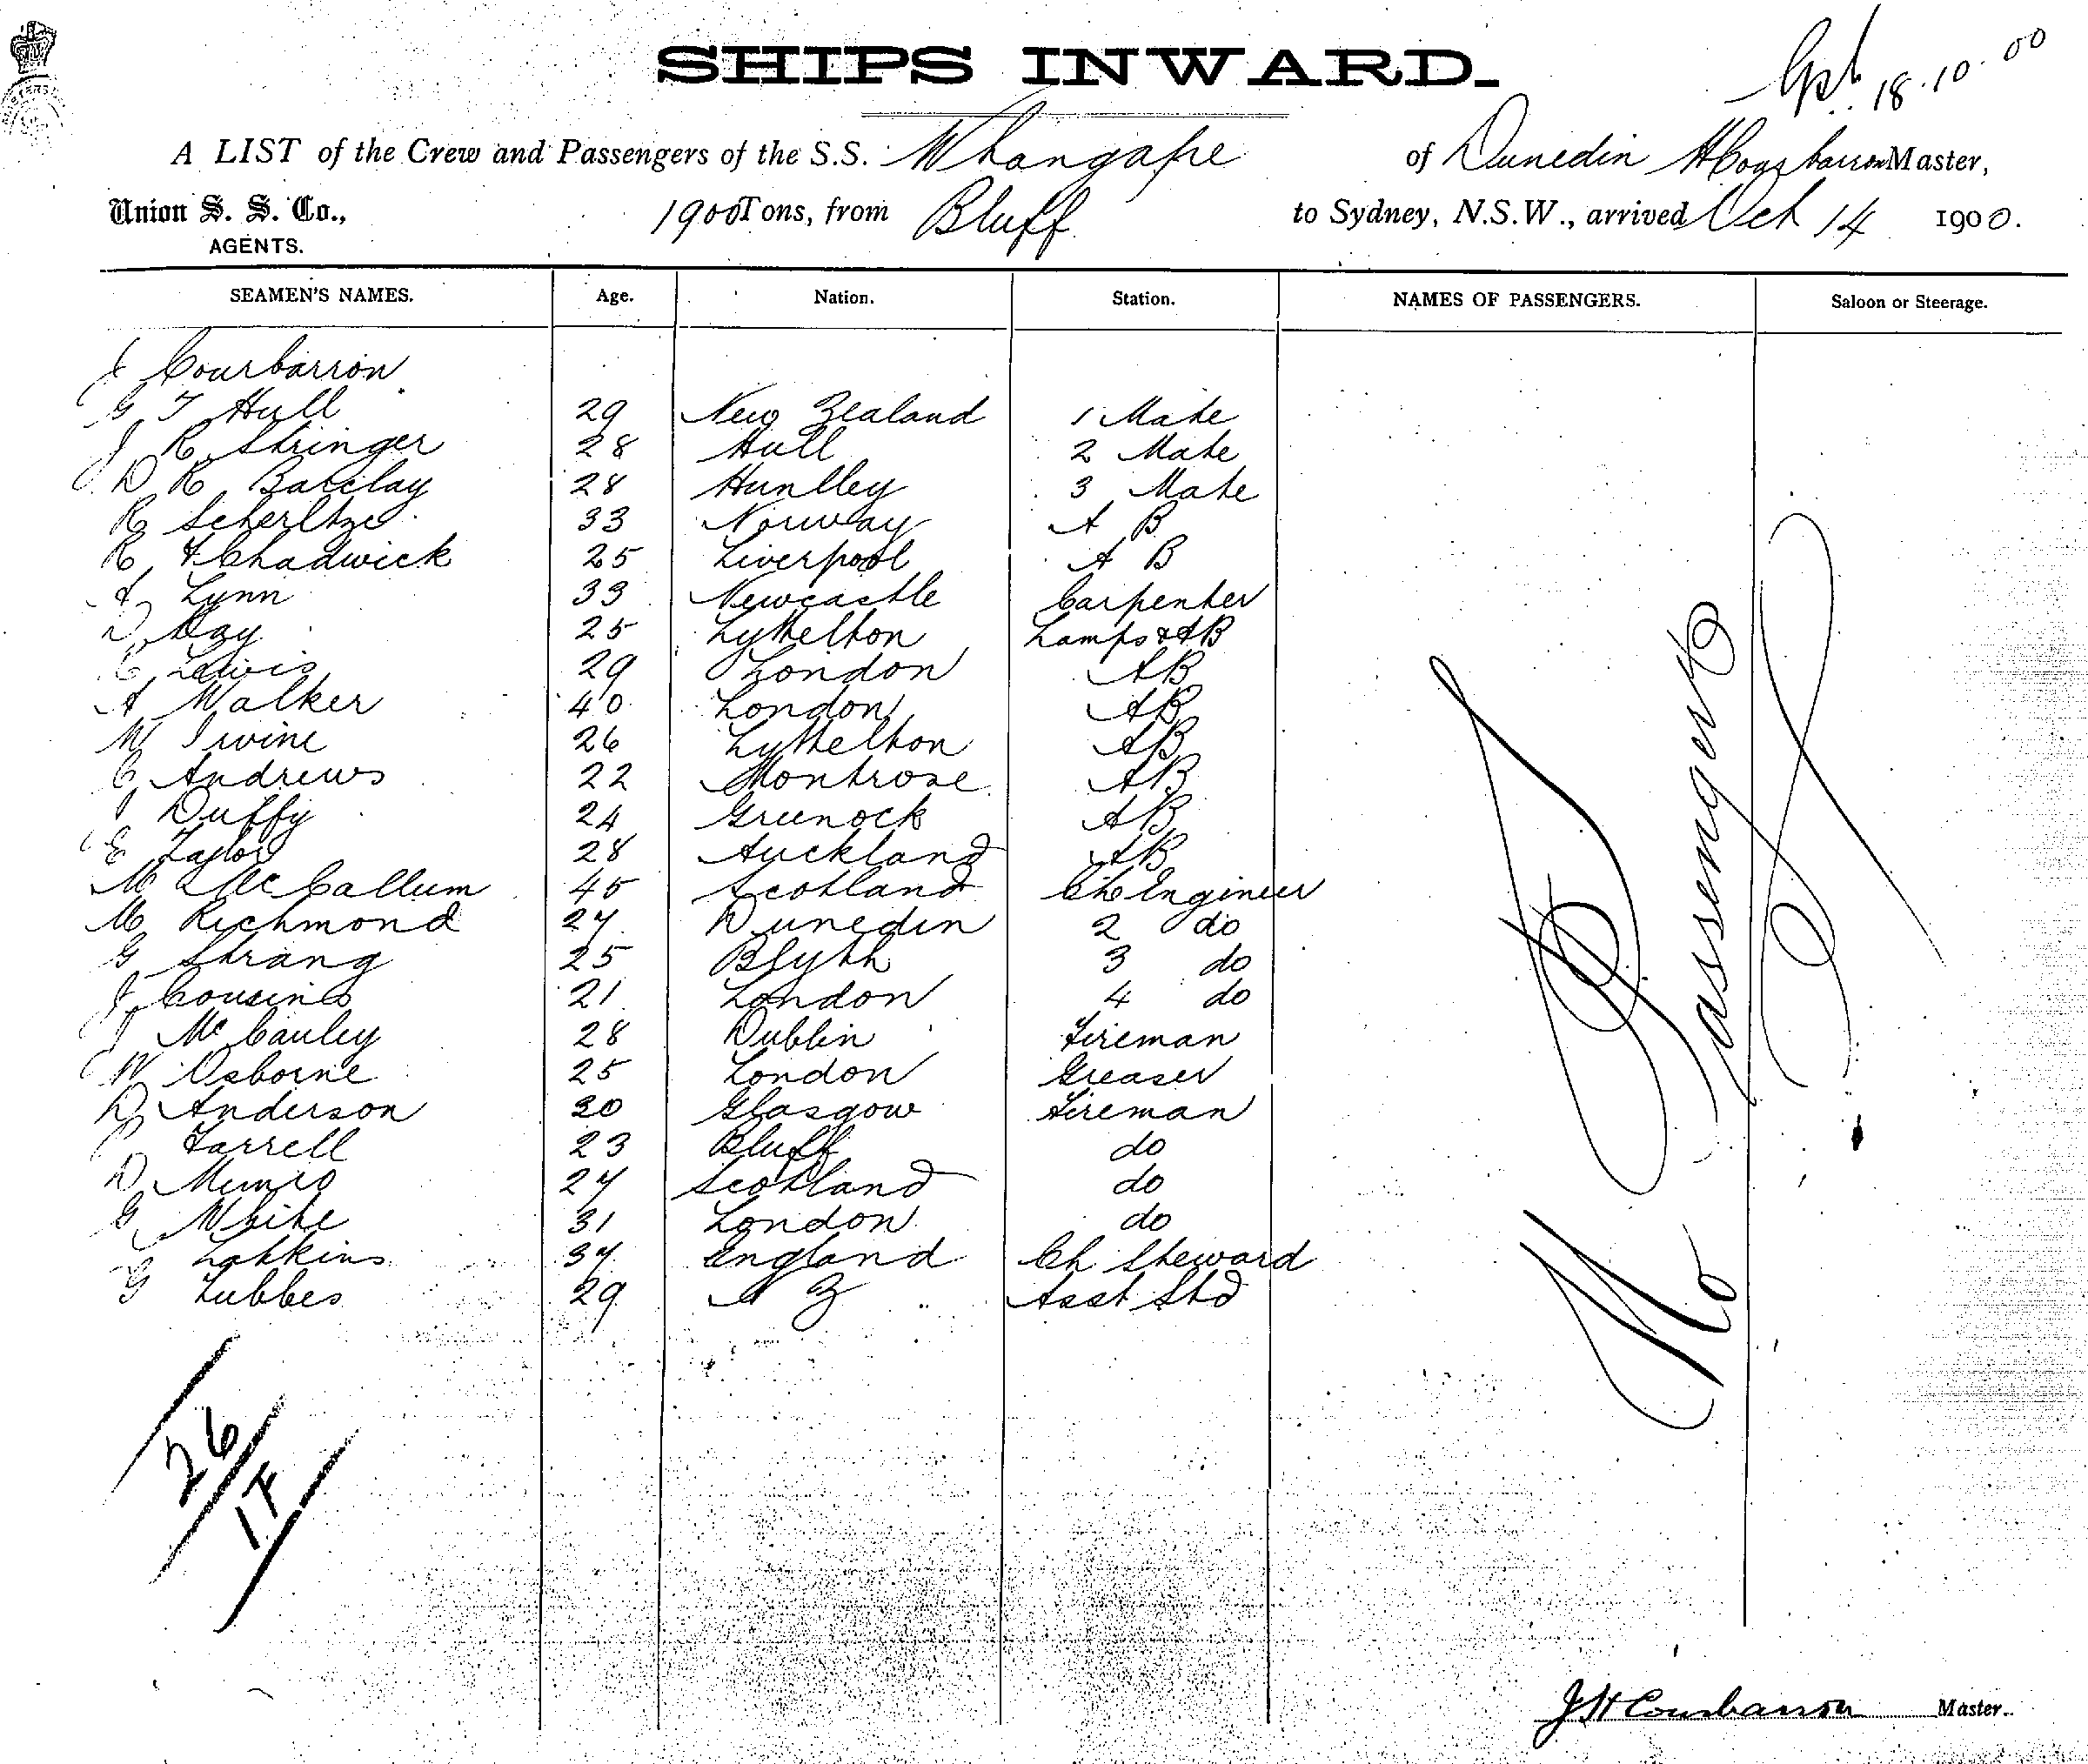 SHIPS INWARD.
18.10.00
A LIST of the Crew and Passengers of the S.S. Whangape of Dunedin Master,
Union S. S. Co., 1900 Tons, from Bluff to Sydney, N.S.W., arrived Oct 14 1900.
AGENTS.
SEAMEN'S NAMES. Age. Nation. Station. NAMES OF PASSENGERS. Saloon or Steerage.
J Courbarron
G T Hull 29 New Zealand 1 Mate
J R Stringer 28 Hull 2 Mate
D R Barclay 28 3 Mate
R 33 Norway A B
R F Chadwick 25 Liverpool A B
Lynn 33 Newcastle Carpenter
D 25 Lyttelton Lamps & AB
C Lewis 29 London AB
A Walker 40 London AB
W Irvine 26 Lyttelton AB
C Andrews 22 Montrose AB
J Duffy 24 Greenock AB
E Taylor 28 Auckland AB
M McCallum 45 Scotland Ch Engineer
M Richmond 27 Dunedin 2 do
G Strang 25 Blyth 3 do
J Cousins 21 London 4 do
J McCauley 28 Dublin Fireman
W Osborne 25 London Greaser
D Anderson 30 Glasgow Fireman
Farrell 23 Bluff do
D Munro 27 Scotland do
G White 31 London do
G 37 England Ch Steward
G Lubbes 29 N Z Asst Std
No Passengers
26
1F
J H Courbarron Master.